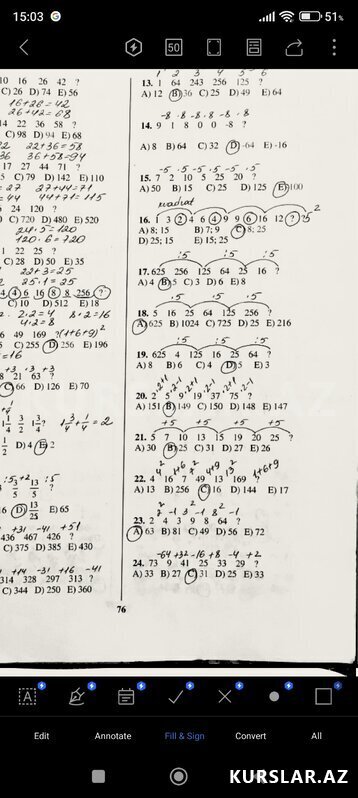 15:03
51%
50
10 16 26 42 ?
C) 26 D) 74 E) 56
16+26=42
26+42=68
14 22 36 58 ?
C) 98 D) 94 E) 68
22+36=58
36+58=94
17 27 44 71 ?
C) 79 D) 142 E) 110
27+44=71
44+71=115
5 24 120 ?
C) 720 D) 480 E) 520
24·5=120
120·6=720
1 22 25 ?
C) 28 D) 50 E) 35
22+3=25
25·1=25
4 4 6 16 8 8 256 ?
C) 10 D) 512 E) 18
2·2=4 8·2=16
4·2=8
C) 255 D) 256 E) 196
=16
8 21 63 ?
C) 66 D) 126 E) 70
D) 4 E) 2
D) E) 65
+31 -41 +51
436 467 426 ?
C) 375 D) 385 E) 430
+14 -31 +16 -41
314 328 297 313 ?
C) 344 D) 250 E) 360
1 2 3 4 5 6
13. 1 64 243 256 125 ?
A) 12 B) 36 C) 25 D) 49 E) 64
-8 -8 -8 -8 -8 -8
14. 9 1 8 0 0 -8 ?
A) 8 B) 64 C) 32 D) -64 E) -16
-5 ·5 -5 ·5 -5 ·5
15. 7 2 10 5 25 20 ?
A) 50 B) 15 C) 25 D) 125 E) 100
kvadrat
16. 1 3 2 4 6 4 9 9 6 16 12 ? ?
A) 8; 15 B) 7; 9 C) 8; 25
D) 25; 15 E) 15; 25
:5 :5 :5
17. 625 256 125 64 25 16 ?
A) 4 B) 5 C) 3 D) 6 E) 8
·5 ·5 ·5
18. 5 16 25 64 125 256 ?
A) 625 B) 1024 C) 725 D) 25 E) 216
:5 :5 :5
19. 625 4 125 16 25 64 ?
A) 8 B) 6 C) 4 D) 5 E) 3
20. 2 5 9 19 37 75 ?
A) 151 B) 149 C) 150 D) 148 E) 147
+5 +5 +5
21. 5 7 10 13 15 19 20 25 ?
A) 30 B) 25 C) 31 D) 27 E) 26
22. 4 16 7 49 13 169 ?
A) 13 B) 256 C) 16 D) 144 E) 17
23. 2 4 3 9 8 64 ?
A) 63 B) 81 C) 49 D) 56 E) 72
-64 +32 -16 +8 -4 +2
24. 73 9 41 25 33 29 ?
A) 33 B) 27 C) 31 D) 25 E) 33
76
Edit Annotate Fill & Sign Convert All
KURSLAR.AZ